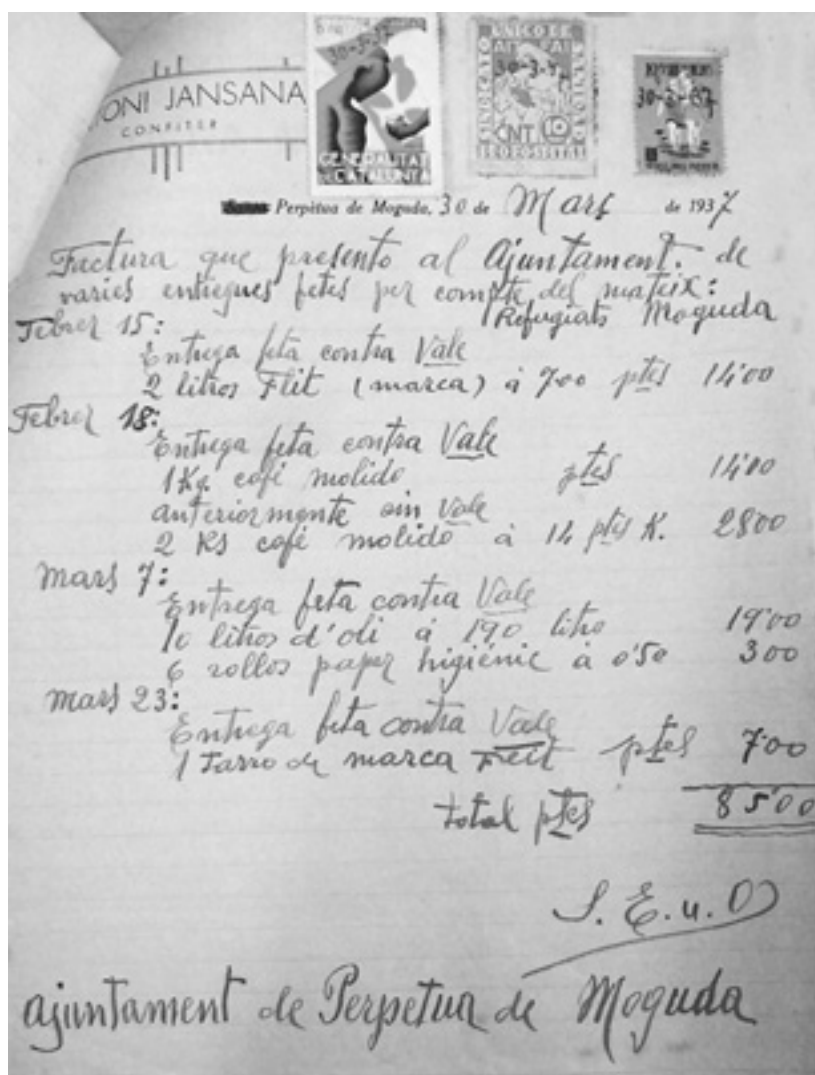 ONI JANSANA
CONFITER
30-3-37
GENERALITAT
DE CATALUNYA
SINDICATO UNICO DE SANIDAD
30-3-37
CNT 10
30-3-37
Perpètua de Moguda, 30 de Mars de 1937
Factura que presento al Ajuntament. de
varies entregues fetes per compte del mateix:
Refugiats Moguda
Febrer 15:
Entrega feta contra Vale
2 litros Flit (marca) à 7'00 ptes 14'00
Febrer 18:
Entrega feta contra Vale
1 Kg. café molido ptes 14'00
anteriormente sin Vale
2 Ks café molido à 14 ptes K. 28'00
Mars 7:
Entrega feta contra Vale
10 litros d'oli à 1'90 litro 19'00
6 rollos paper higiènic à 0'50 3'00
Mars 23:
Entrega feta contra Vale
1 Tarro de marca Fleit ptes 7'00
total ptes 85'00
S. E. u. O
Ajuntament de Perpetua de Moguda